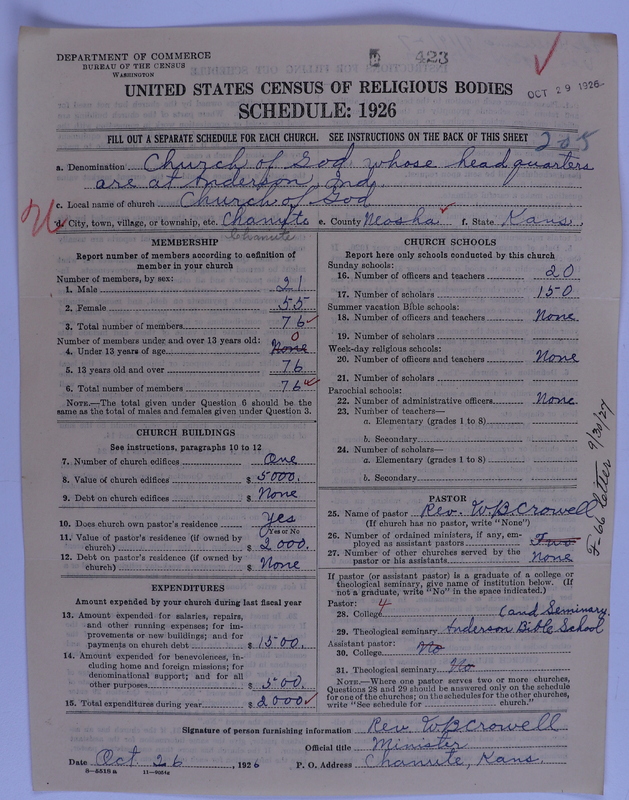 DEPARTMENT OF COMMERCE
BUREAU OF THE CENSUS
WASHINGTON
423
OCT 29 1926
UNITED STATES CENSUS OF RELIGIOUS BODIES
SCHEDULE: 1926
FILL OUT A SEPARATE SCHEDULE FOR EACH CHURCH. SEE INSTRUCTIONS ON THE BACK OF THIS SHEET
205
a. Denomination Church of God whose headquarters
are at Anderson, Ind.
c. Local name of church Church of God
d. City, town, village, or township, etc. Chanute e. County Neosha f. State Kans.
Chanute
MEMBERSHIP
Report number of members according to definition of
member in your church
Number of members, by sex:
1. Male 21
2. Female 55
3. Total number of members 76
Number of members under and over 13 years old: 0
4. Under 13 years of age None
5. 13 years old and over 76
6. Total number of members 76
NOTE.—The total given under Question 6 should be
same as the total of males and females given under Question 3.
CHURCH BUILDINGS
See instructions, paragraphs 10 to 12
7. Number of church edifices One
8. Value of church edifices $ 5000.
9. Debt on church edifices $ None
10. Does church own pastor's residence yes
(Yes or No)
11. Value of pastor's residence (if owned by
church) $ 2000.
12. Debt on pastor's residence (if owned by
church) $ None
EXPENDITURES
Amount expended by your church during last fiscal year
13. Amount expended for salaries, repairs,
and other running expenses; for im-
provements or new buildings; and for
payments on church debt $ 1500.
14. Amount expended for benevolences, in-
cluding home and foreign missions; for
denominational support; and for all
other purposes $ 500.
15. Total expenditures during year $ 2000
CHURCH SCHOOLS
Report here only schools conducted by this church
Sunday schools:
16. Number of officers and teachers 20
17. Number of scholars 150
Summer vacation Bible schools:
18. Number of officers and teachers None
19. Number of scholars
Week-day religious schools:
20. Number of officers and teachers None
21. Number of scholars
Parochial schools:
22. Number of administrative officers None
23. Number of teachers—
a. Elementary (grades 1 to 8)
b. Secondary
24. Number of scholars—
a. Elementary (grades 1 to 8)
b. Secondary
PASTOR
25. Name of pastor Rev. W B Crowell
(If church has no pastor, write "None")
26. Number of ordained ministers, if any, em-
ployed as assistant pastors Two
27. Number of other churches served by the
pastor or his assistants None
If pastor (or assistant pastor) is a graduate of a college or
theological seminary, give name of institution below. (If
not a graduate, write "No" in the space indicated.)
Pastor: 4
28. College (and Seminary.
29. Theological seminary Anderson Bible School
Assistant pastor:
30. College No
31. Theological seminary No
NOTE.—Where one pastor serves two or more churches,
Questions 28 and 29 should be answered only on the schedule
for one of the churches; on the schedules for the other churches,
write "See schedule for church."
F-66 letter 9/30/27
Signature of person furnishing information Rev. W B Crowell
Official title Minister
Date Oct 26, 1926 P. O. Address Chanute, Kans.
8—5518a 11—9051